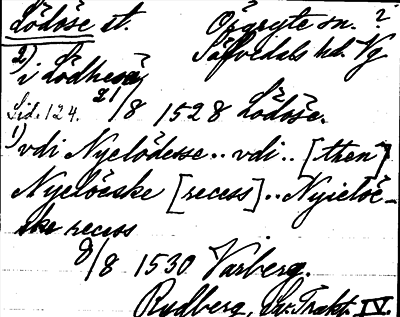 Lödöse st. Ofgryte sn. ?
Säfvedals hd. Vg
2) i Lödhesse
Sid. 124. 21/8 1528 Lödöse.
1) vdi Nyelödesse.. vdi.. [then]
Nyelöeske [recess].. Nyielöe-
ske recess
8/8 1530 Varberg.
Rydberg, Sv. Trakt. IV.